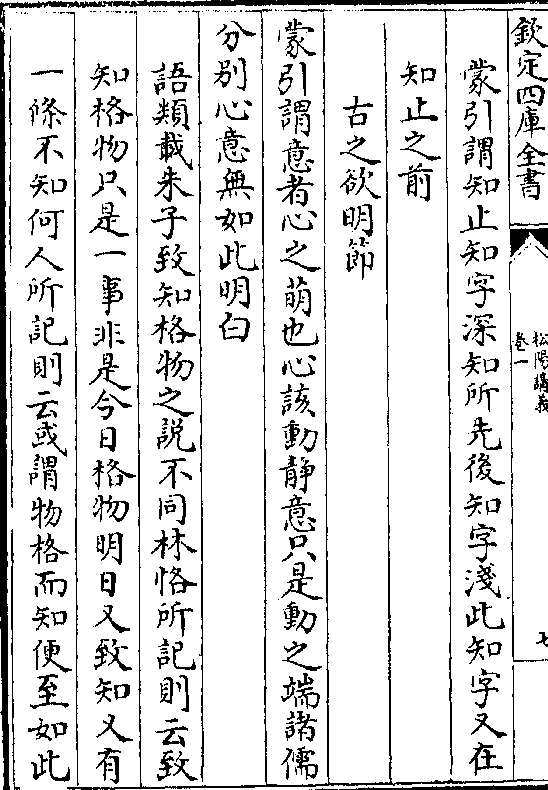 欽定四庫全書
松陽講義
卷一
七
蒙引謂知止知字深知所先後知字淺此知字又在
知止之前
古之欲明節
蒙引謂意者心之萌也心該動靜意只是動之端諸儒
分别心意無如此明白
語類載朱子致知格物之説不同林恪所記則云致
知格物只是一事非是今日格物明日又致知又有
一條不知何人所記則云或謂物格而知便至如此